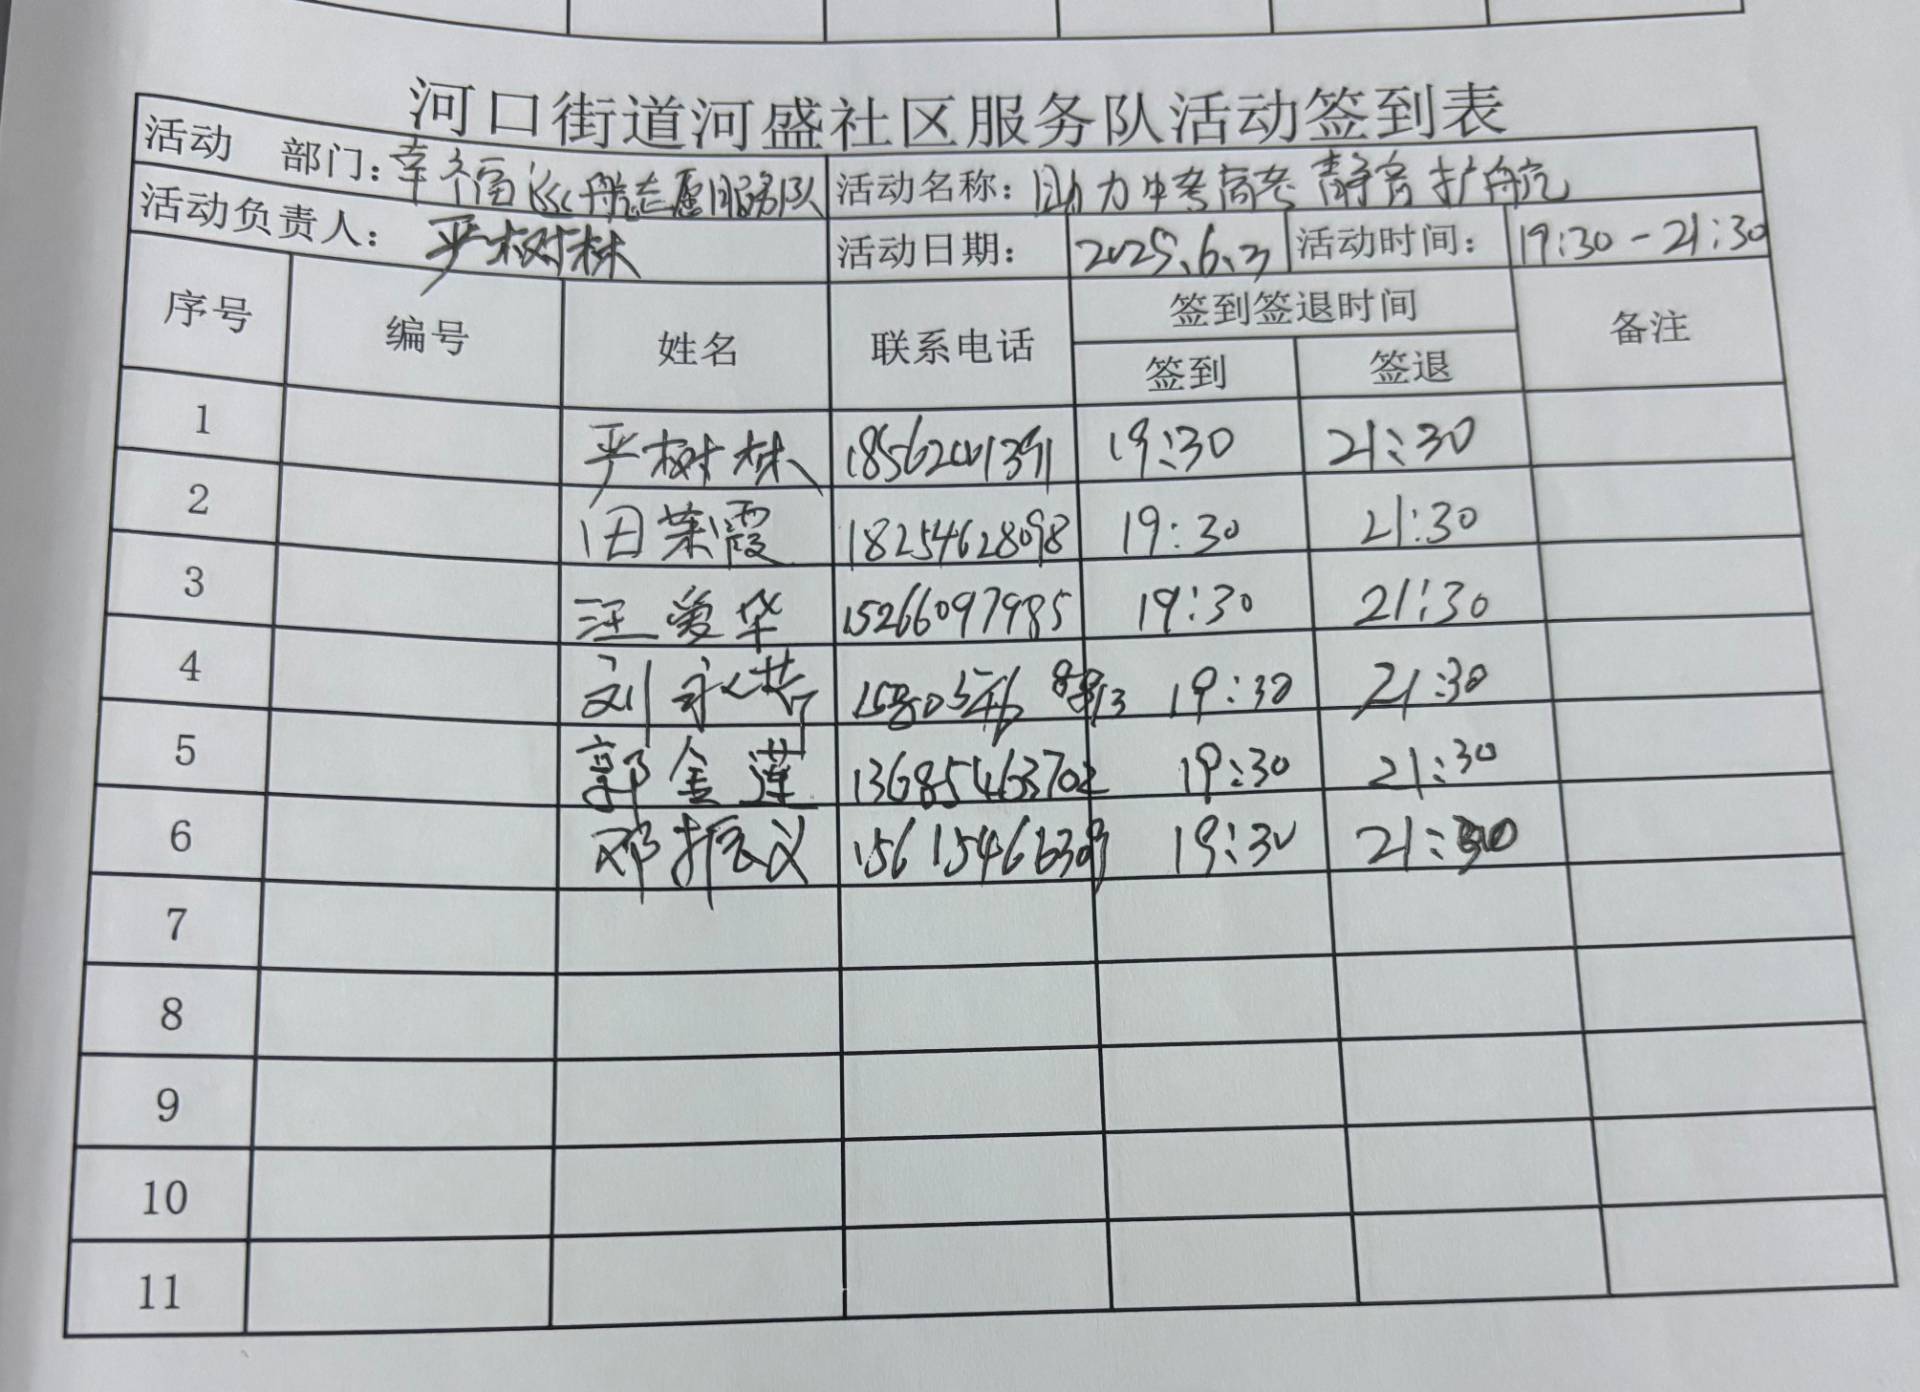 河口街道河盛社区服务队活动签到表
活动 部门：幸福 航志愿服务队 活动名称：助力中考高考 静音护航
活动负责人： 严树林 活动日期： 2025.6.3 活动时间： 19:30-21:30
序号 编号 姓名 联系电话 签到签退时间 备注
签到 签退
1 严树林 18562001391 19:30 21:30
2 田荣霞 18254628098 19:30 21:30
3 汪爱华 15266097985 19:30 21:30
4 刘永 19:30 21:30
5 郭金莲 13685463702 19:30 21:30
6 邓振义 19:30 21:30
7
8
9
10
11